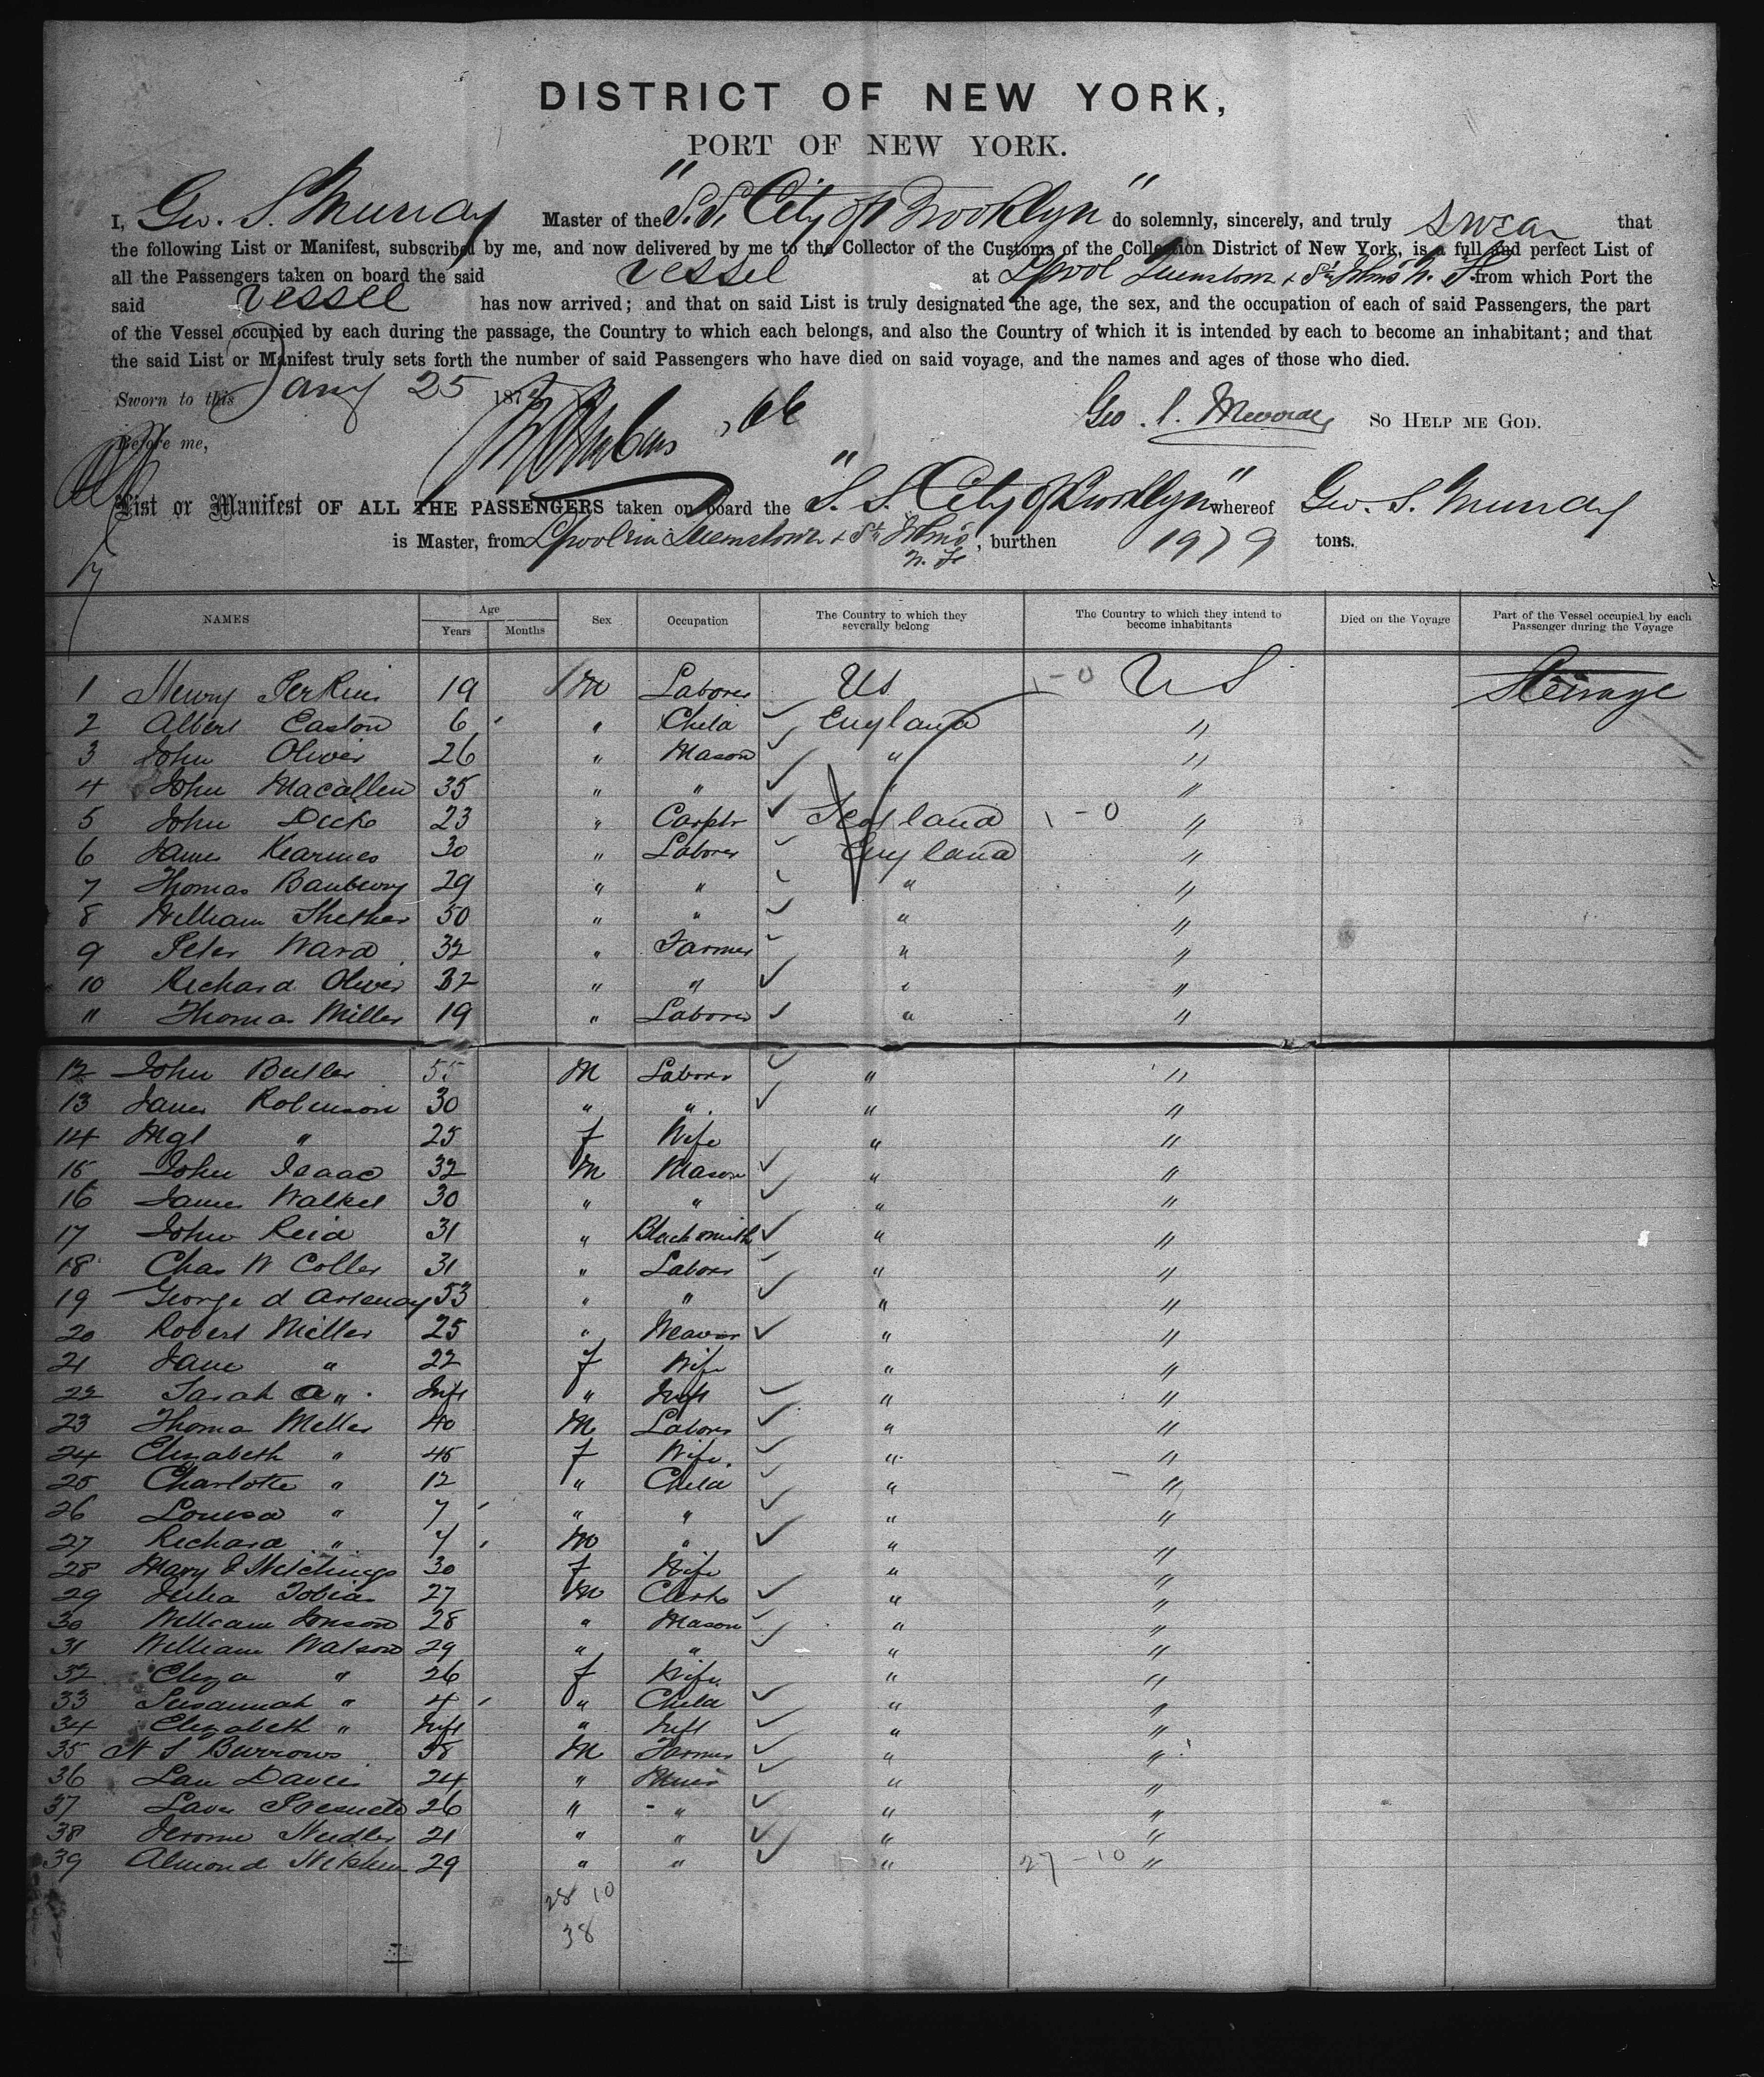 DISTRICT OF NEW YORK,
PORT OF NEW YORK.
I, Geo. S. Murray Master of the "S.S. City of Brooklyn" do solemnly, sincerely, and truly swear that
the following List or Manifest, subscribed by me, and now delivered by me to the Collector of the Customs of the Collection District of New York, is a full and perfect List of
all the Passengers taken on board the said vessel at Lpool Queenstown & St Johns N. F. from which Port the
said vessel has now arrived; and that on said List is truly designated the age, the sex, and the occupation of each of said Passengers, the part
of the Vessel occupied by each during the passage, the Country to which each belongs, and also the Country of which it is intended by each to become an inhabitant; and that
the said List or Manifest truly sets forth the number of said Passengers who have died on said voyage, and the names and ages of those who died.
Sworn to this Jany 25 187
Geo. S. Murray So HELP ME GOD.
Before me,
List or Manifest OF ALL THE PASSENGERS taken on board the "S. S. City of Brooklyn" whereof Geo. S. Murray
is Master, from Lpool via Queenstown & St Johns N. F., burthen 1979 tons.
NAMES Age Years Months Sex Occupation The Country to which they severally belong The Country to which they intend to become inhabitants Died on the Voyage Part of the Vessel occupied by each Passenger during the Voyage
1 Henry Perkins 19 M Laborer US 1-0 US Steerage
2 Albert Easton 6 " Child England "
3 John Oliver 26 " Mason " "
4 John Macallen 35 " " "
5 John Dick 23 " Carptr Scotland 1-0 "
6 James Kearnes 30 " Laborer England "
7 Thomas Banbury 29 " " " "
8 William 50 " " " "
9 Peter Ward 32 " Farmer " "
10 Richard Oliver 32 " " " "
11 Thomas Miller 19 " Laborer " "
12 John Butler 55 M Laborer " "
13 James Robinson 30 " " " "
14 Mgt " 25 f Wife " "
15 John Isaac 32 M Mason " "
16 James Walker 30 " " " "
17 John Reid 31 " Blacksmith " "
18 Chas W Coller 31 " Laborer " "
19 George d 53 " " " "
20 Robert Miller 25 " Weaver " "
21 Jane " 22 f Wife " "
22 Sarah A " Inft " Inft " "
23 Thomas Miller 40 M Laborer " "
24 Elizabeth " 45 f Wife " "
25 Charlotte " 12 " Child " "
26 Louisa " 7 " " " "
27 Richard " 4 M " " "
28 Mary J Hutchings 30 f Wife " "
29 Tobias 27 M Clerk " "
30 William Jonson 28 " Mason " "
31 William Watson 29 " " " "
32 Eliza " 26 f Wife " "
33 Susannah " 4 " Child " "
34 Elizabeth " Inft " Inft " "
35 S Burrows 38 M Farmer " "
36 Davies 24 " " "
37 26 " " " "
38 Jerome 21 " " " "
39 Almond 29 " " " 27-10 "
28 10
38